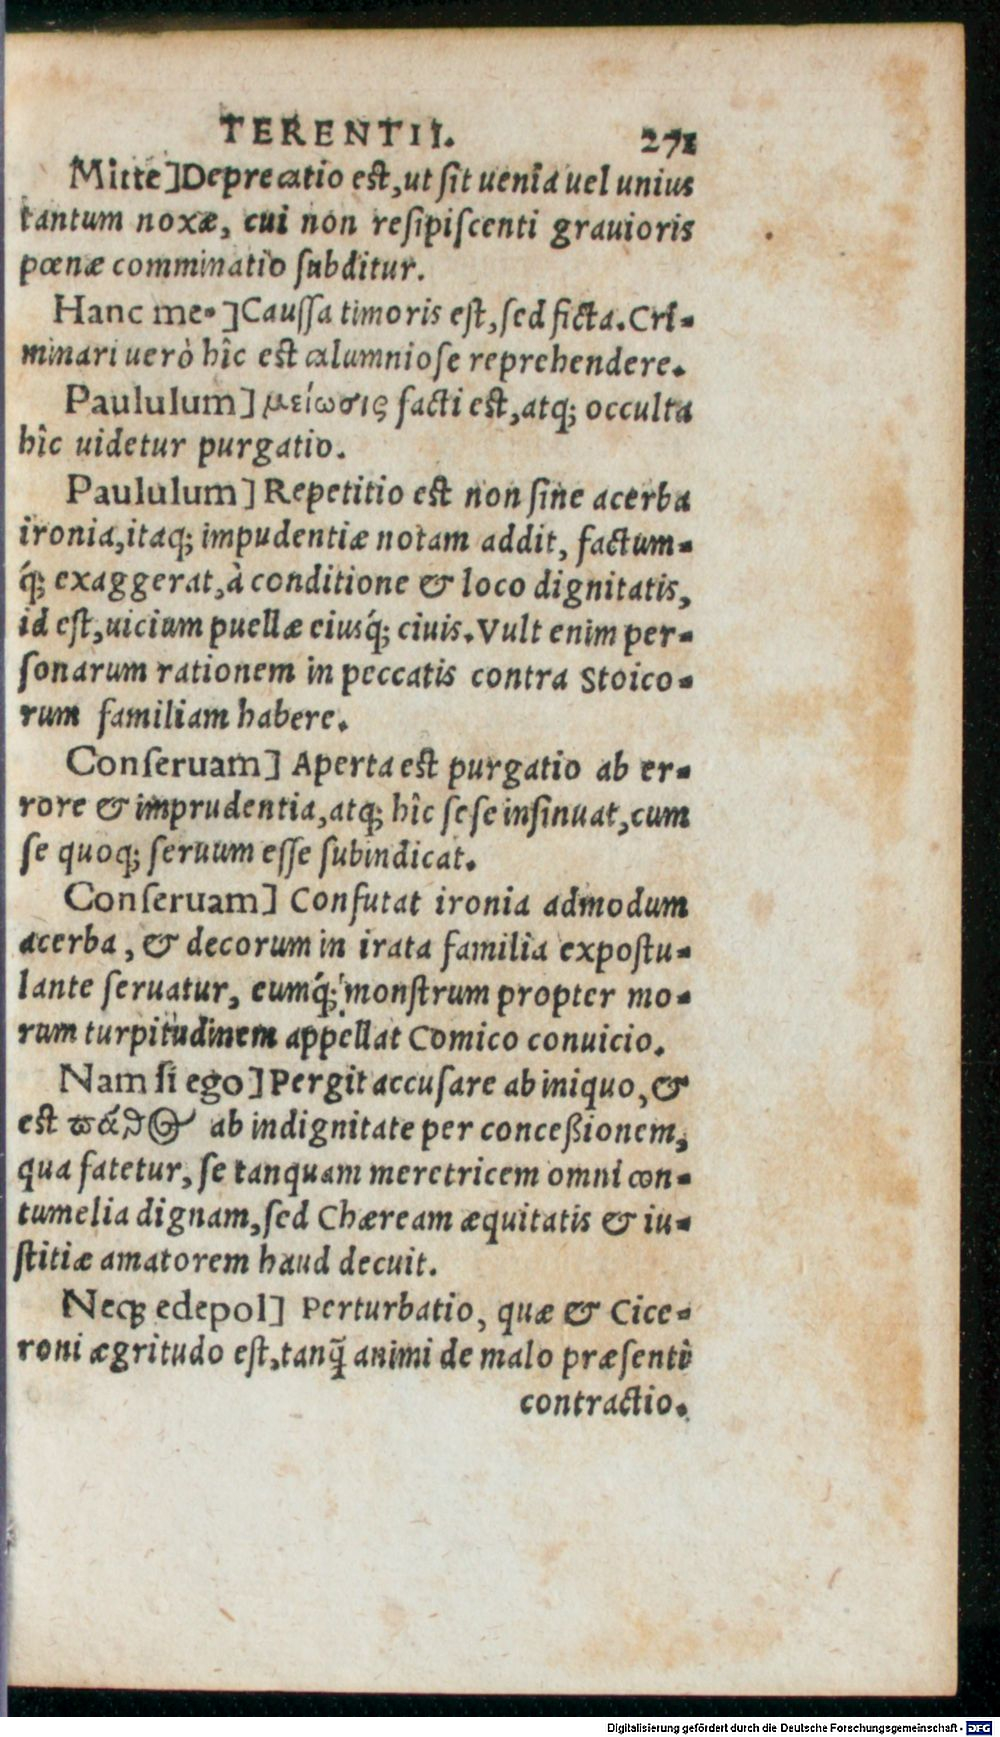 TERENTII. 271
Mitte]Deprecatio est,ut sit uenia uel unius
tantum noxæ, cui non resipiscenti grauioris
pœnæ comminatio subditur.
Hanc me-]Caussa timoris est,sed ficta.Cri-
minari uerò hîc est calumniose reprehendere.
Paululum] μείωσις facti est,atq; occulta
hîc uidetur purgatio.
Paululum] Repetitio est non sine acerba
ironia,itaq; impudentiæ notam addit, factum-
q́; exaggerat,à conditione & loco dignitatis,
id est,uicium puellæ eiusq́; ciuis.Vult enim per-
sonarum rationem in peccatis contra Stoico-
rum familiam habere.
Conseruam] Aperta est purgatio ab er-
rore & imprudentia,atq; hîc sese insinuat,cum
se quoq; seruum esse subindicat.
Conseruam] Confutat ironia admodum
acerba, & decorum in irata familia expostu-
lante seruatur, eumq́; monstrum propter mo-
rum turpitudinem appellat Comico conuicio.
Nam si ego]Pergit accusare ab iniquo, &
est πάθος ab indignitate per conceßionem,
qua fatetur, se tanquam meretricem omni con-
tumelia dignam,sed Chæream æquitatis & iu-
stitiæ amatorem haud decuit.
Neq; edepol] Perturbatio, quæ & Cice-
roni ægritudo est,tanq̃ animi de malo præsenti
contractio.
Digitalisierung gefördert durch die Deutsche Forschungsgemeinschaft - DFG